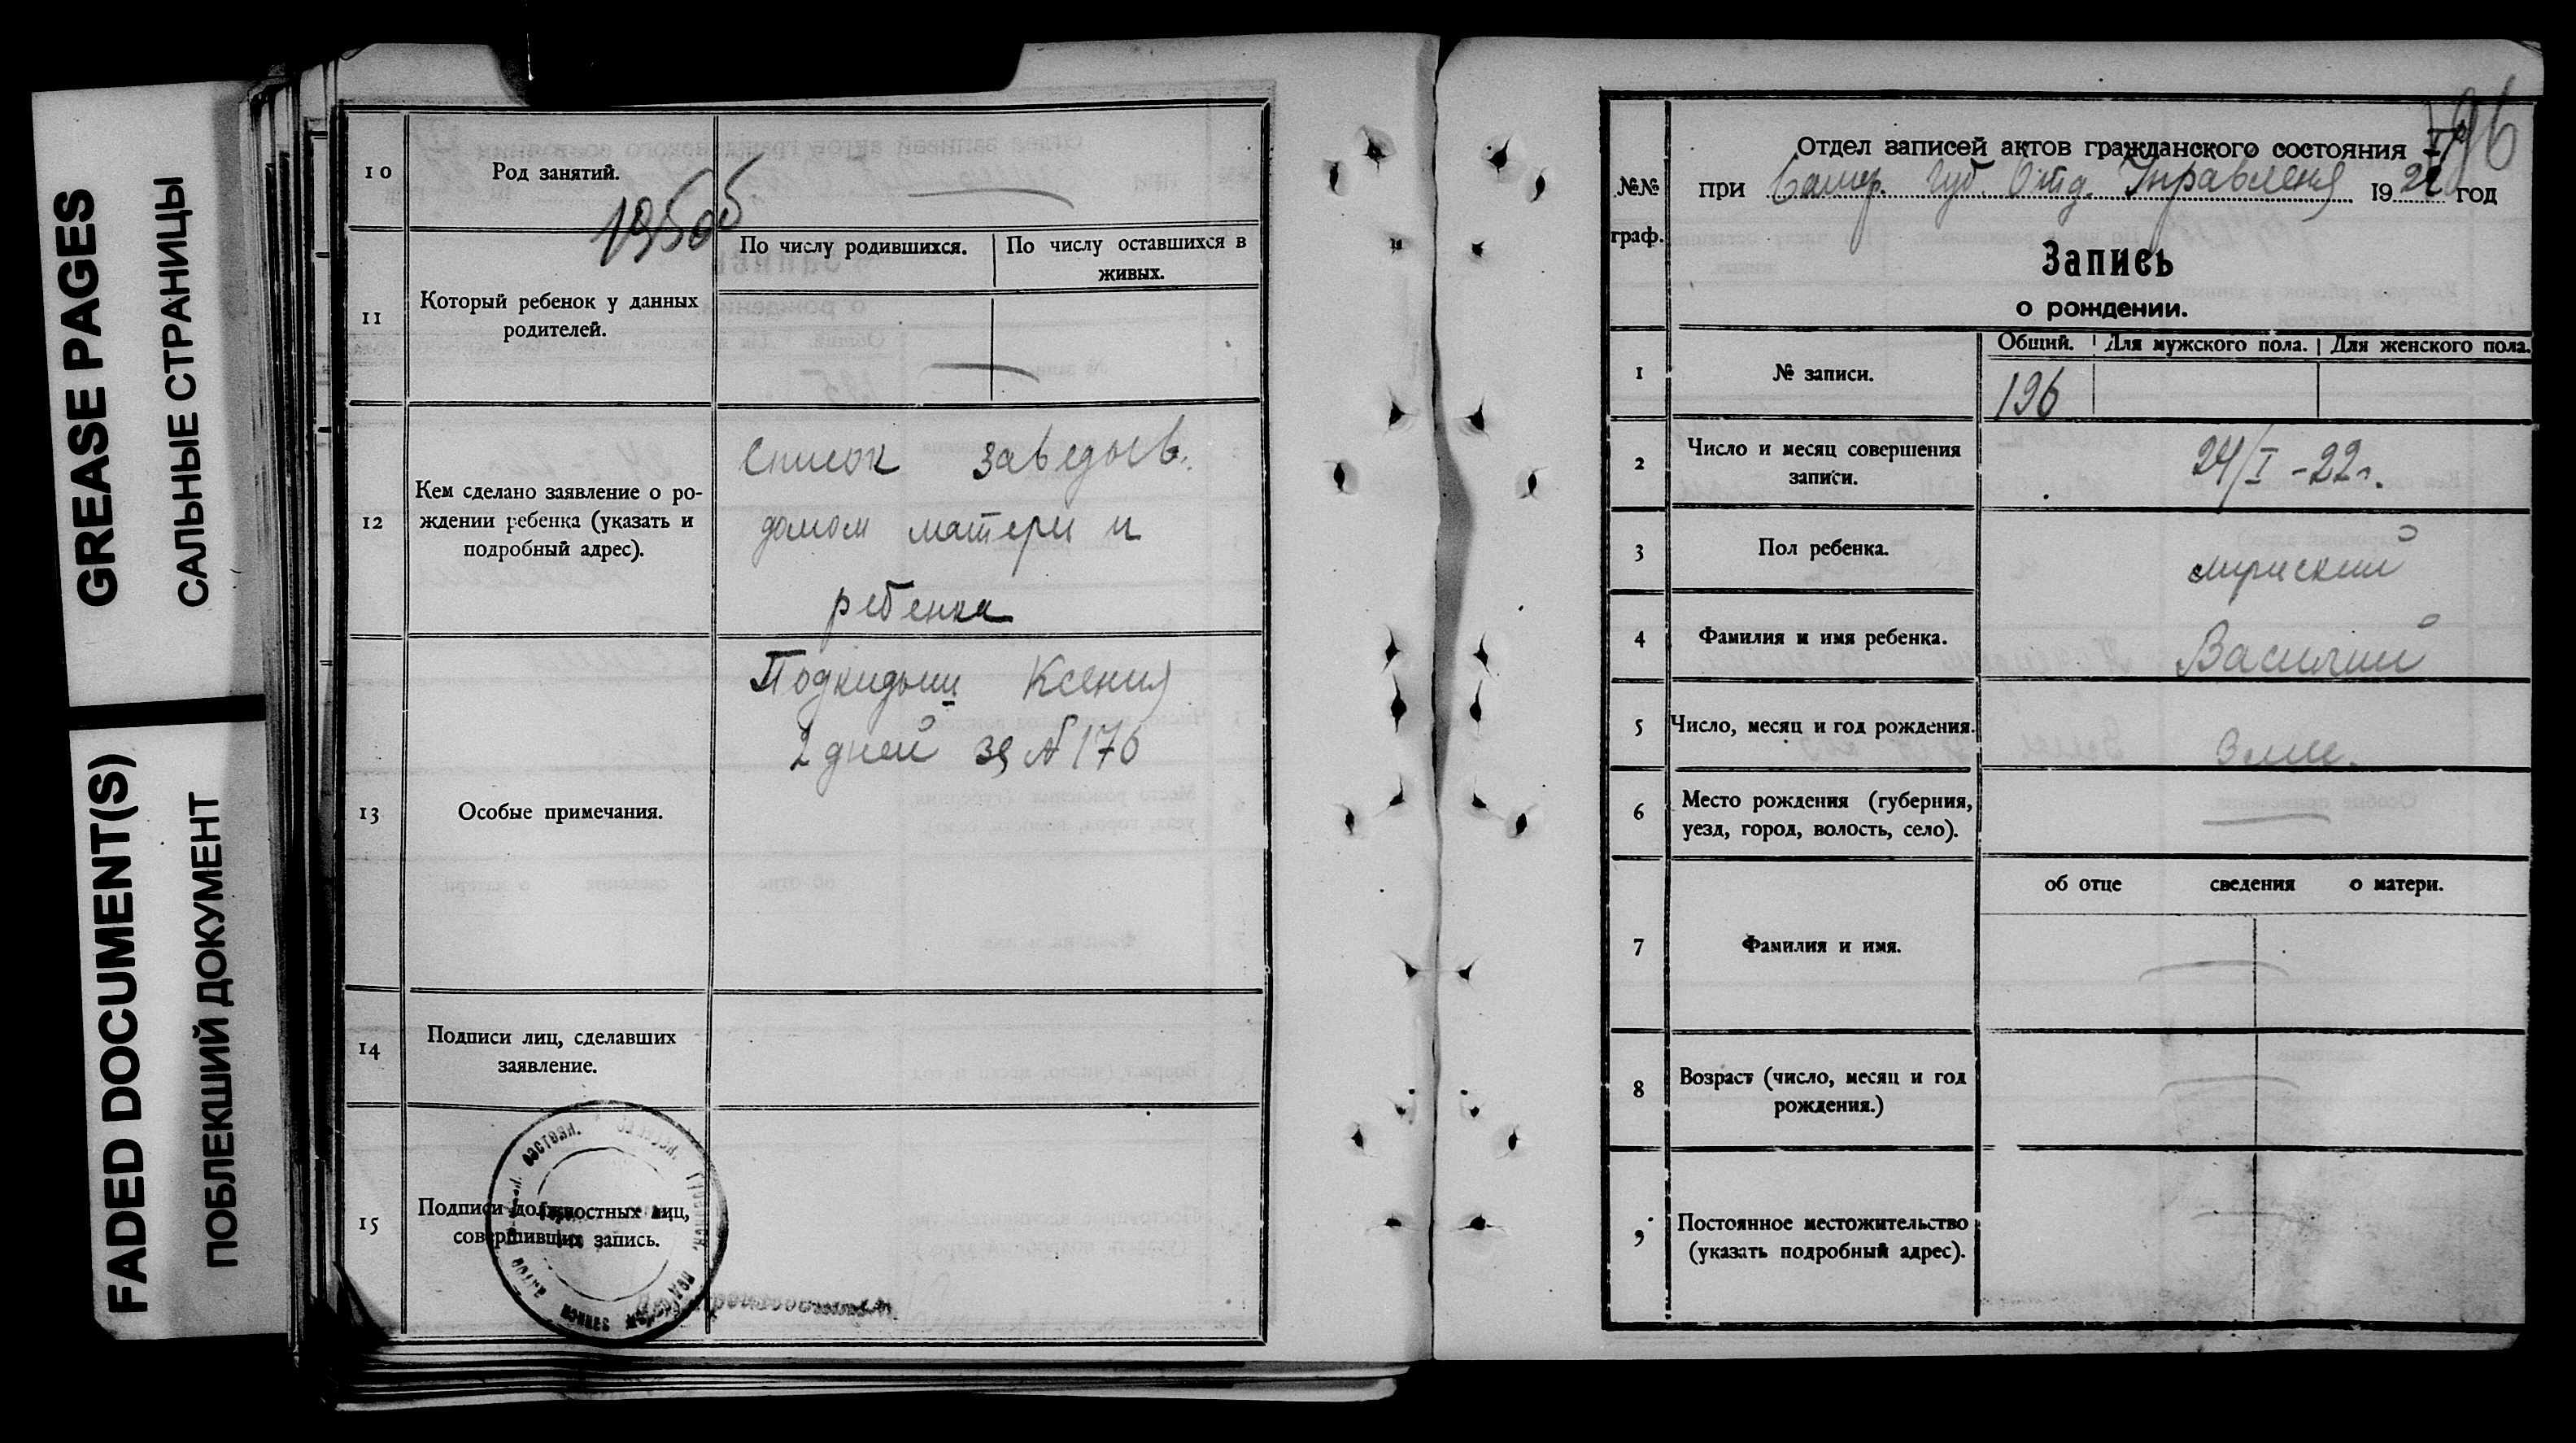 GREASE PAGES
САЛЬНЫЕ СТРАНИЦЫ
FADED DOCUMENT(S)
ПОБЛЕКШИЙ ДОКУМЕНТ
10
Род занятий.
195 об
11
Который ребенок у данных
родителей.
По числу родившихся.
По числу оставшихся в
живых.
12
Кем сделано заявление о ро-
ждении ребенка (указать и
подробный адрес).
Список заведыв.
домом матери и
ребенка
13
Особые примечания.
Подкидыш Ксения
2 дней за № 176
14
Подписи лиц, сделавших
заявление.
15
Подписи должностных лиц,
совершивших запись.
196
№№
граф.
Отдел записей актов гражданского состояния
при Самар. Губ. Отд. Управления 1922 год
Запись
о рождении.
1
№ записи.
Общий. Для мужского пола. Для женского пола.
196
2
Число и месяц совершения
записи.
24/I - 22 г.
3
Пол ребенка.
мужский
4
Фамилия и имя ребенка.
Василий
5
Число, месяц и год рождения.
3 мес.
6
Место рождения (губерния,
уезд, город, волость, село).
об отце сведения о матери.
7
Фамилия и имя.
8
Возраст (число, месяц и год
рождения.)
9
Постоянное местожительство
(указать подробный адрес).